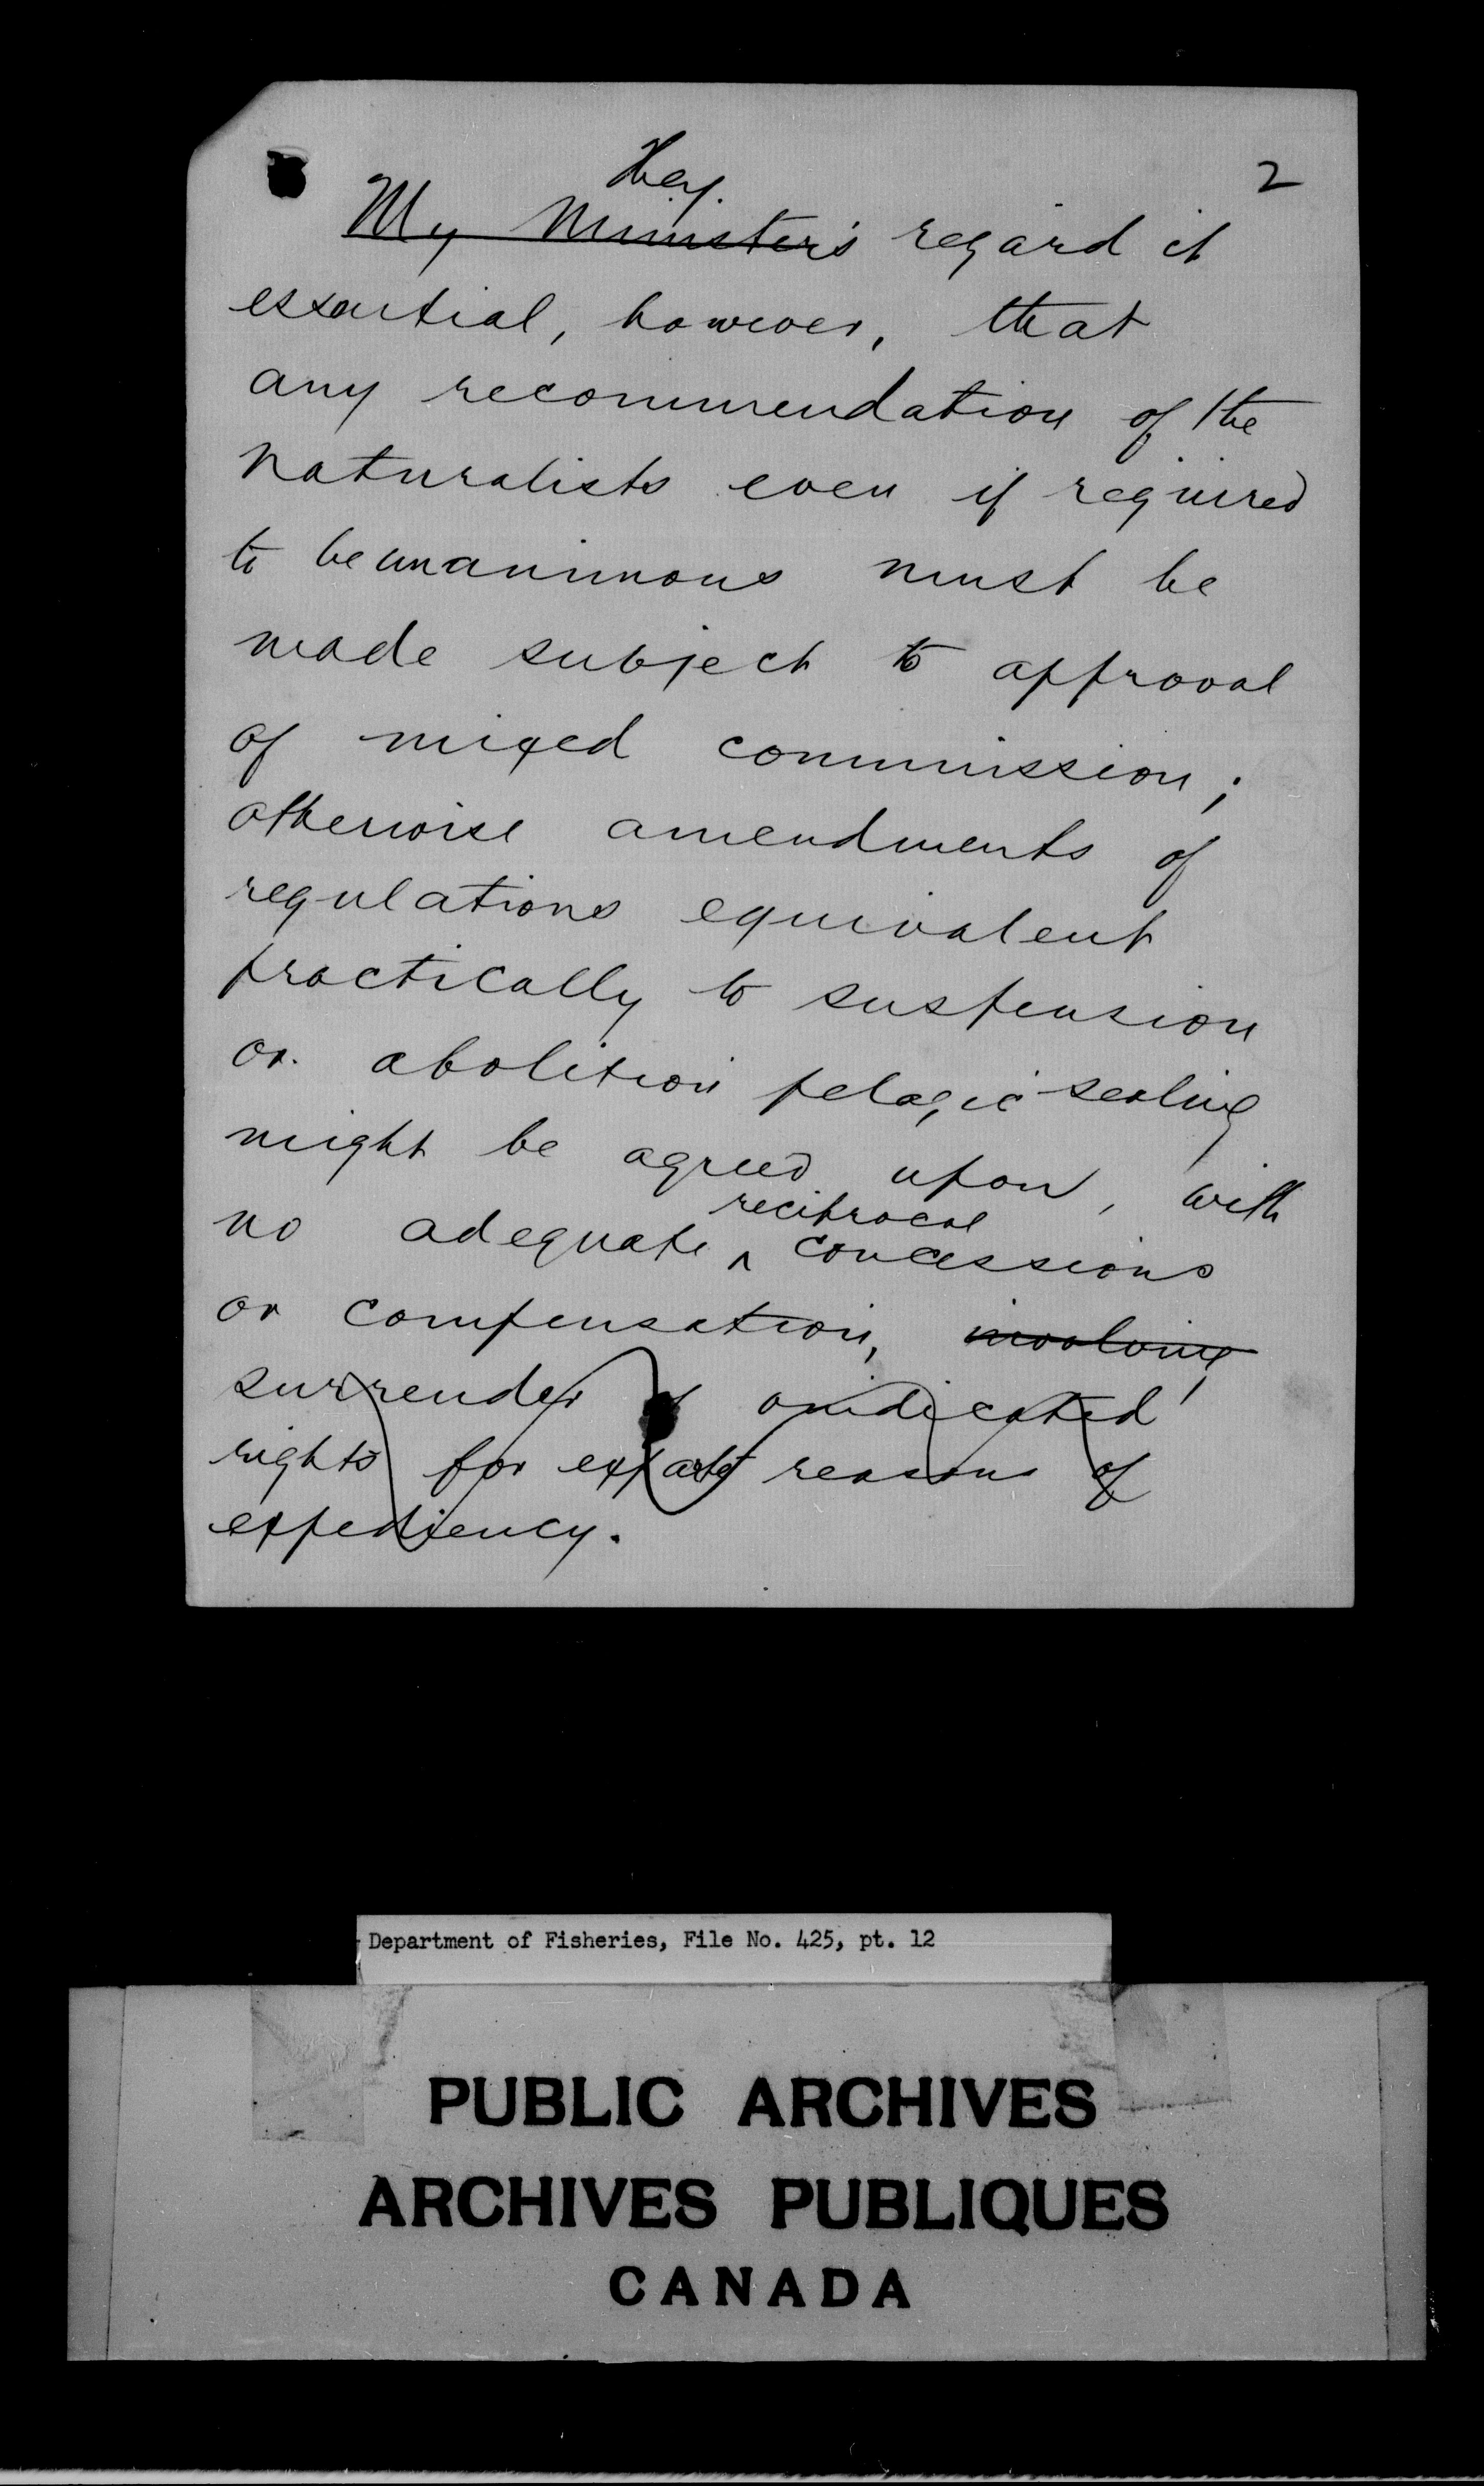 2
They
My Ministers regard it
essential, however, that
any recommendation of the
naturalists even if required
to be unanimous must be
made subject to approval
of mixed commission;
otherwise amendments of
regulations equivalent
practically to suspension
or abolition pelagic sealing
might be agreed upon, with
reciprocal
no adequate ^ concessions
or compensation, involving
surrender of vindicated
rights for exparte reasons of
expediency.
Department of Fisheries, File No. 425, pt. 12
PUBLIC ARCHIVES
ARCHIVES PUBLIQUES
CANADA